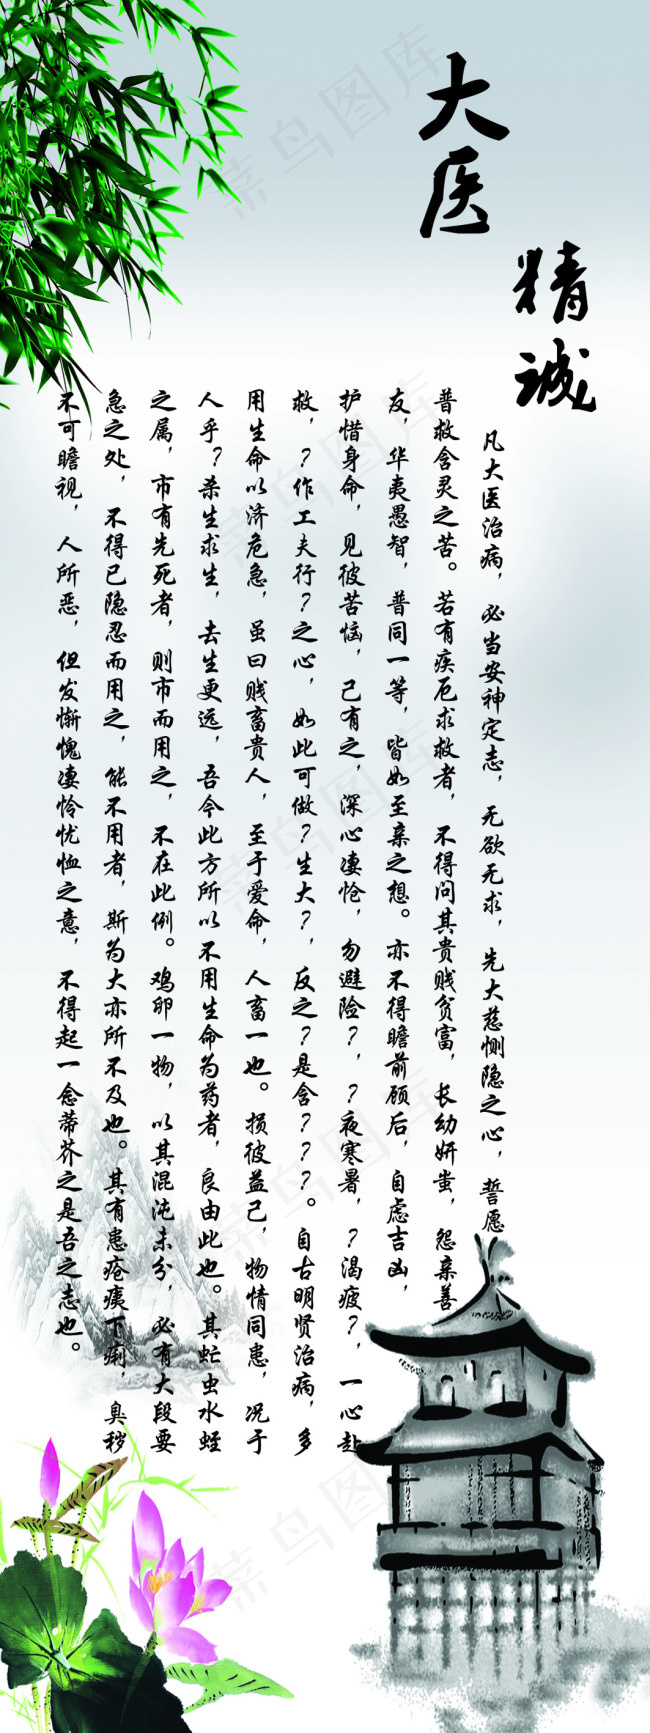 大医
精诚
凡大医治病，必当安神定志，无欲无求，先大慈恻隐之心，誓愿
普救含灵之苦。若有疾厄求救者，不得问其贵贱贫富，长幼妍蚩，怨亲善
友，华夷愚智，普同一等，皆如至亲之想。亦不得瞻前顾后，自虑吉凶，
护惜身命，见彼苦恼，己有之，深心凄怆，勿避险?，?夜寒暑，?渴疲?，一心赴
救，?作工夫行?之心，如此可做?生大?，反之?是含???。自古明贤治病，多
用生命以济危急，虽曰贱畜贵人，至于爱命，人畜一也。损彼益己，物情同患，况于
人乎?杀生求生，去生更远，吾今此方所以不用生命为药者，良由此也。其虻虫水蛭
之属，市有先死者，则市而用之，不在此例。鸡卵一物，以其混沌未分，必有大段要
急之处，不得已隐忍而用之，能不用者，斯为大亦所不及也。其有患疮痍下痢，臭秽
不可瞻视，人所恶，但发惭愧凄怜忧恤之意，不得起一念蒂芥之是吾之志也。
菜鸟图库